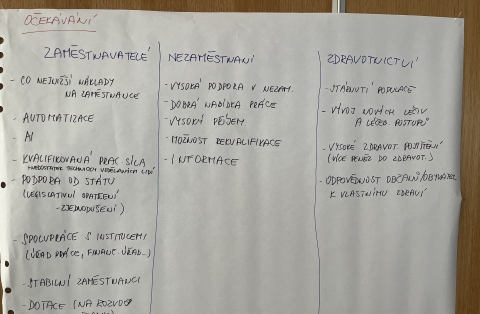 OČEKÁVÁNÍ
ZAMĚSTNAVATELÉ
- CO NEJNIŽŠÍ NÁKLADY
NA ZAMĚSTNANCE
- AUTOMATIZACE
- AI
- KVALIFIKOVANÁ PRAC. SÍLA
NEDOSTATEK TECHNICKY VZDĚLANÝCH LIDÍ
- PODPORA OD STÁTU
(LEGISLATIVNÍ OPATŘENÍ
- ZJEDNODUŠENÍ)
- SPOLUPRÁCE S INSTITUCEMI
(ÚŘAD PRÁCE, FINANČ. ÚŘAD...)
- STABILNÍ ZAMĚSTNANCI
- DOTACE (NA ROZVOJ
NEZAMĚSTNANÍ
- VYSOKÁ PODPORA V NEZAM.
- DOBRÁ NABÍDKA PRÁCE
- VYSOKÝ PŘÍJEM
- MOŽNOST REKVALIFIKACE
- INFORMACE
ZDRAVOTNICTVÍ
- STÁRNUTÍ POPULACE
- VÝVOJ NOVÝCH LÉČIV
A LÉČEB. POSTUPŮ
- VYSOKÉ ZDRAVOT. POJIŠTĚNÍ
(VÍCE PENĚZ DO ZDRAVOT.)
- ODPOVĚDNOST OBČANŮ/OBYVATEL
K VLASTNÍMU ZDRAVÍ